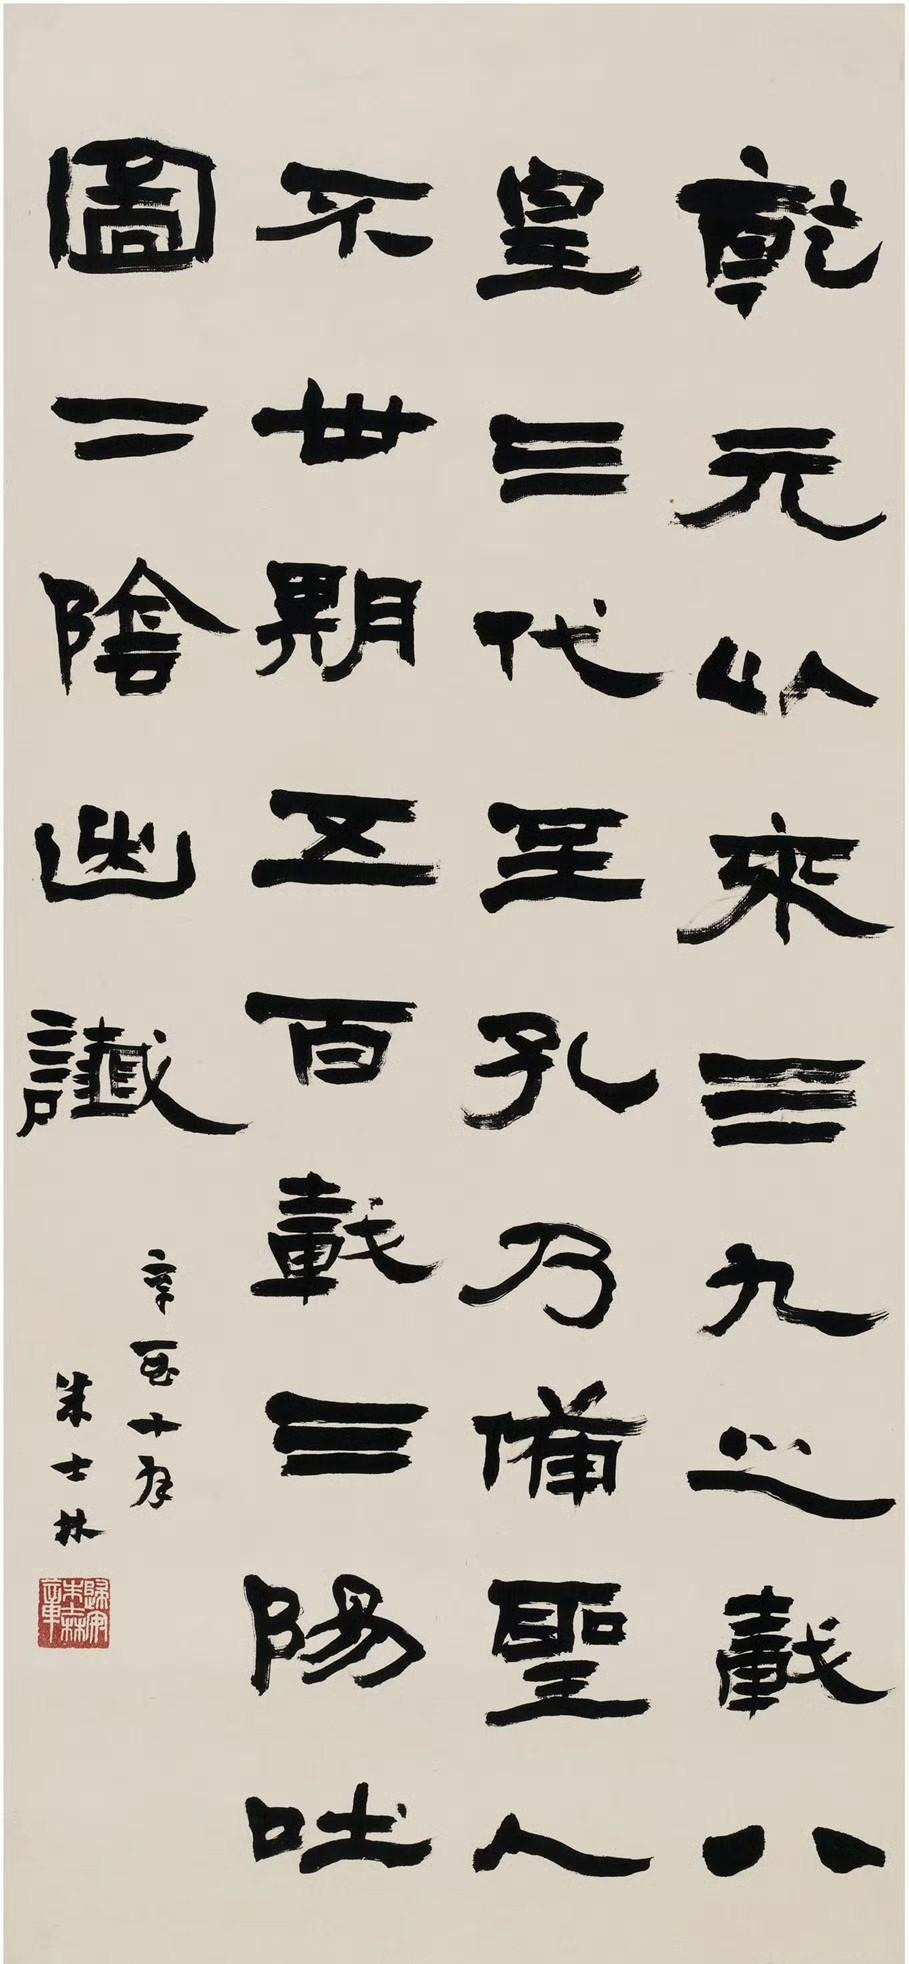 乾元以來三九之載八
皇三代至孔乃備聖人
不世期五百載三陽吐
圖二陰出讖
辛酉十月
朱士林